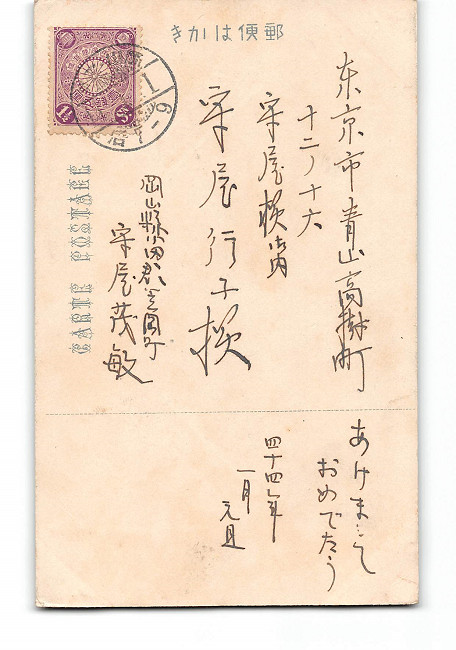 きかは便郵
CARTE POSTALE
東京市青山高樹町
十二ノ十六
守屋様内
守屋行子様
岡山縣小田郡笠岡町
守屋茂敏
あけまして
おめでたう
四十四年
一月元旦
1½ Sn